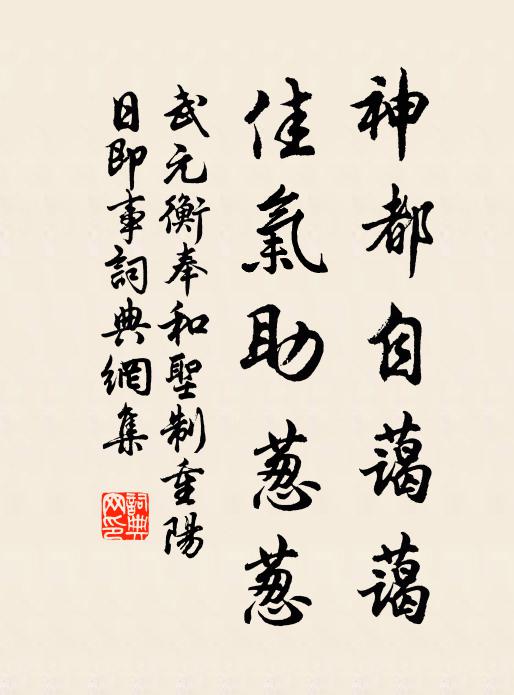 神都自藹藹
佳氣助葱葱
武元衡奉和聖制重陽
日即事詞典網集
詞典
网印